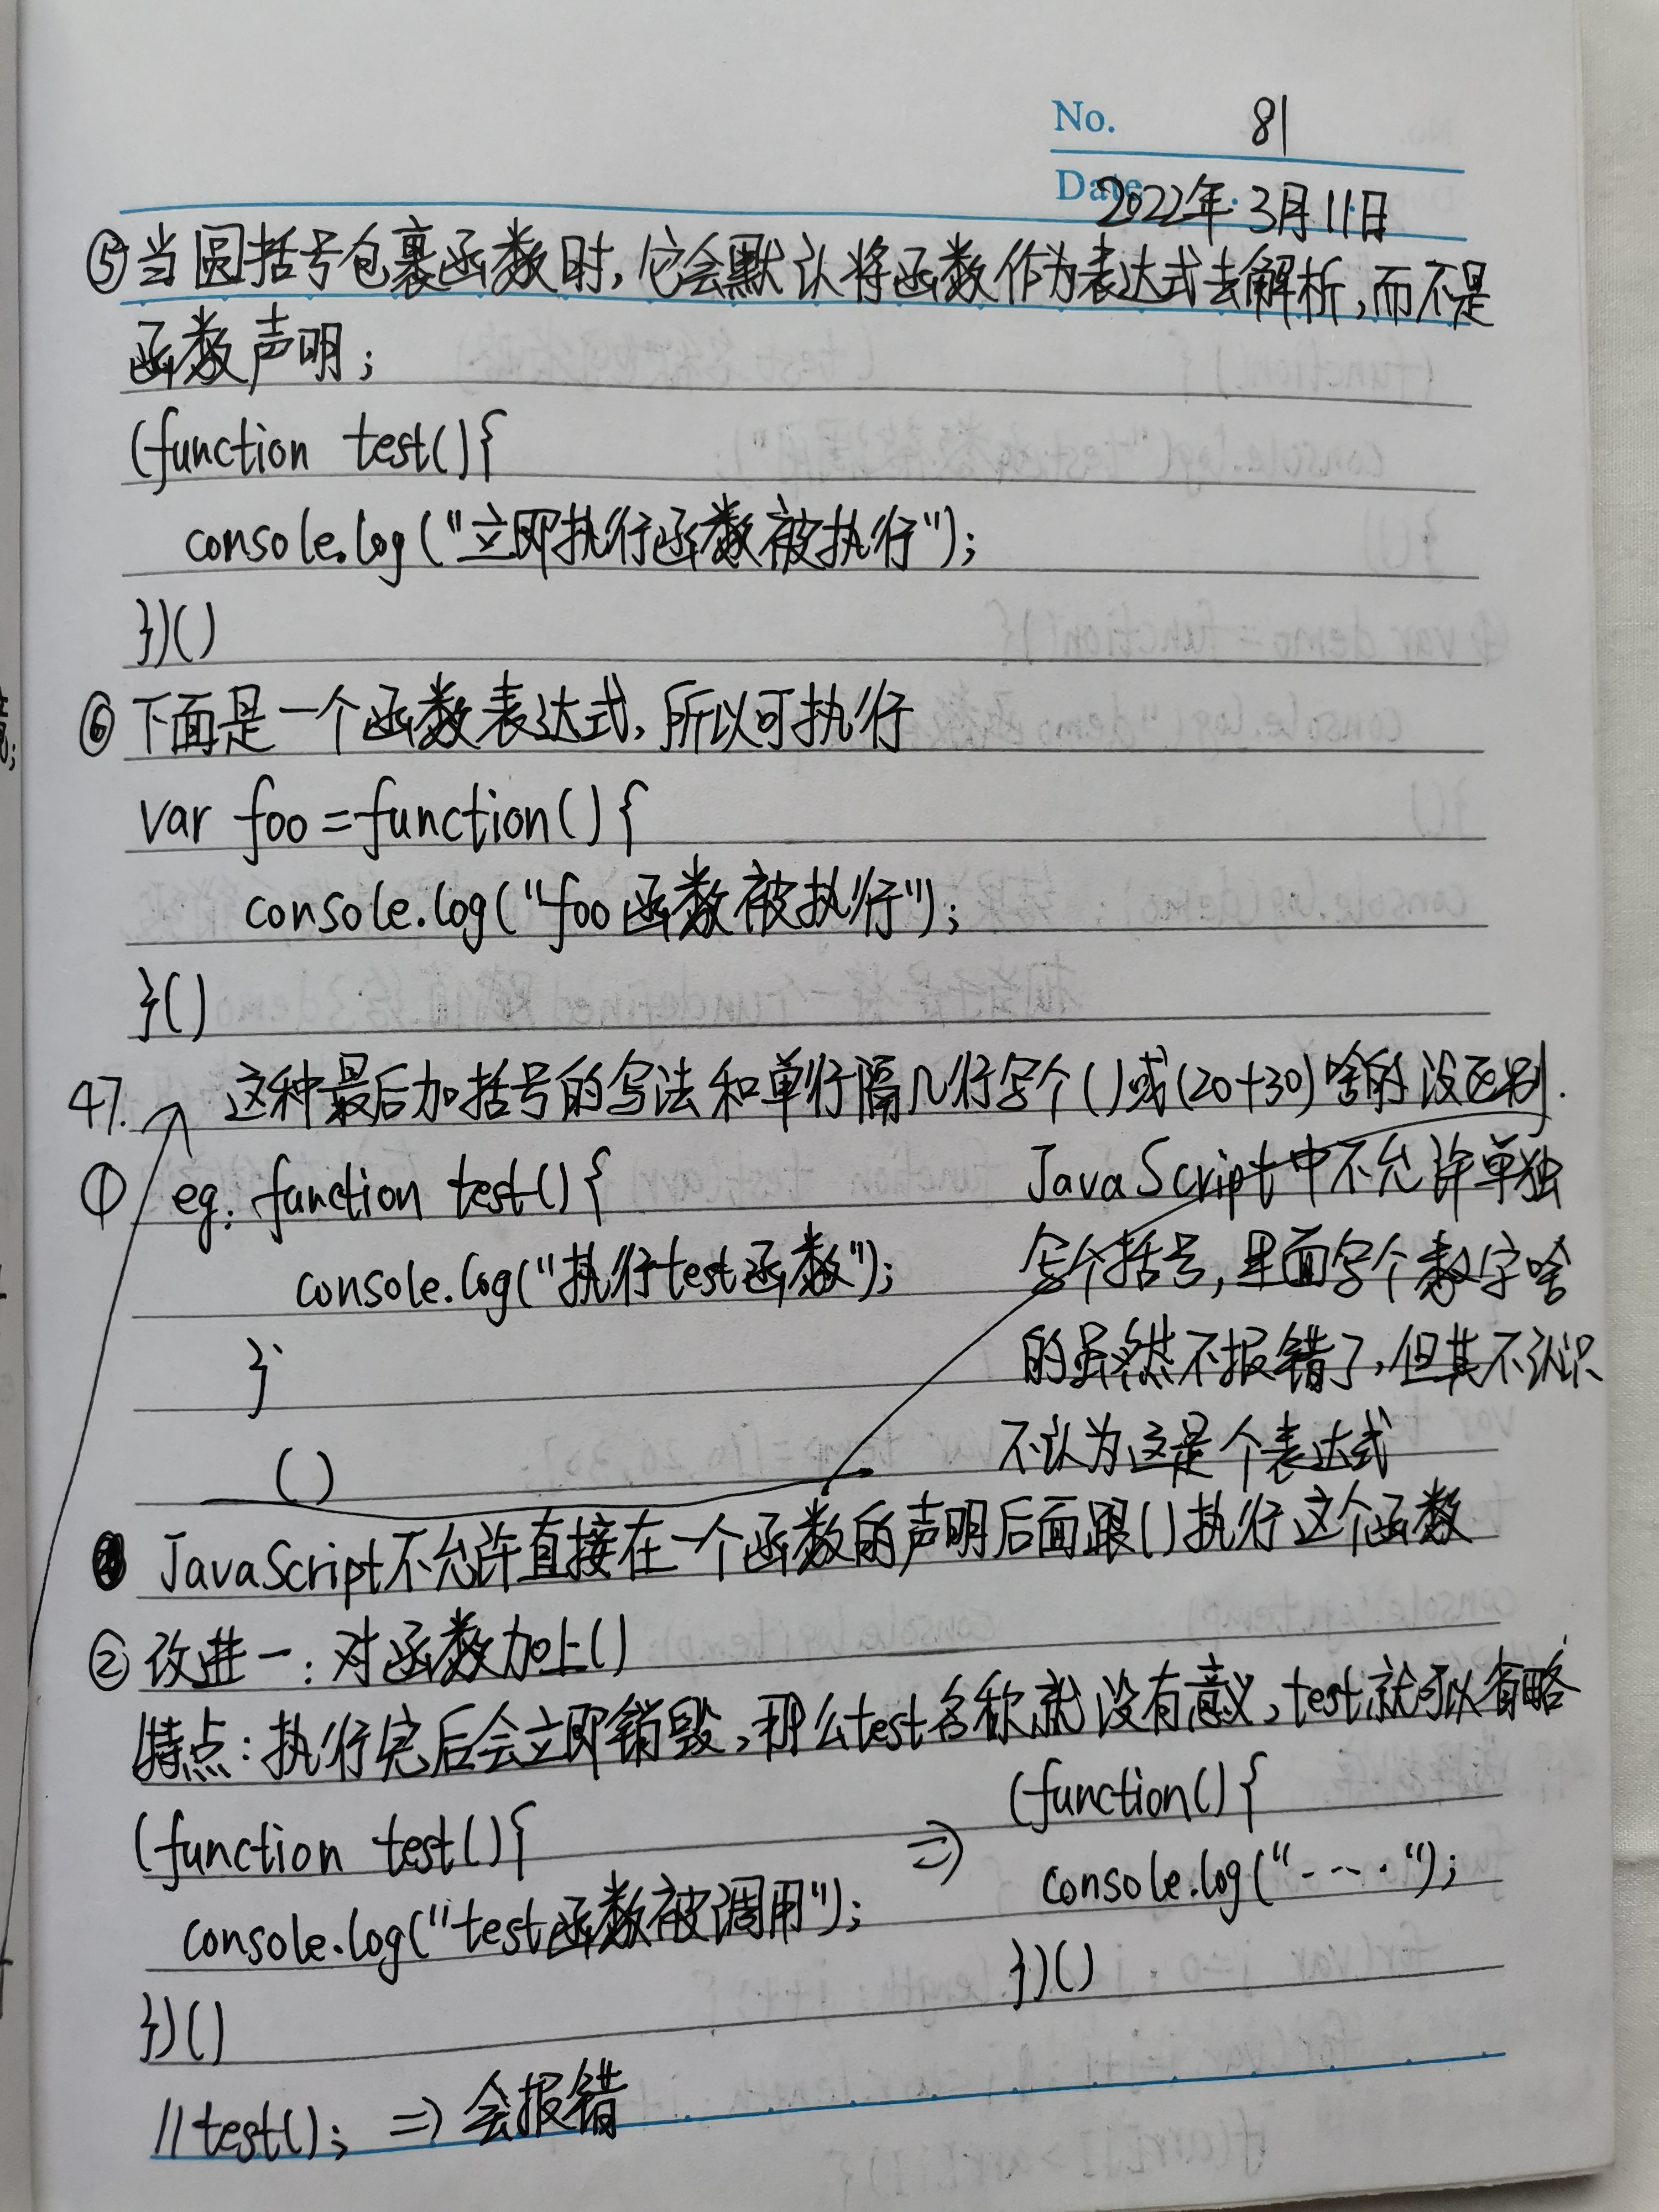 No. 81
Date 2022年3月11日
⑤当圆括号包裹函数时,它会默认将函数作为表达式去解析,而不是
函数声明;
(function test(){
console.log("立即执行函数被执行");
})()
⑥下面是一个函数表达式,所以可执行
var foo=function(){
console.log("foo函数被执行");
}()
47. 这种最后加括号的写法和单行隔几行写个()或(20+30)啥的没区别.
① eg: function test(){
console.log("执行test函数");
}
()
JavaScript中不允许单独
写个括号,里面写个数字啥
的虽然不报错了,但其不认识
不认为这是个表达式
JavaScript不允许直接在一个函数的声明后面跟()执行这个函数
②改进一:对函数加上()
特点:执行完后会立即销毁,那么test名称就没有意义,test就可以省略
(function test(){
console.log("test函数被调用");
})()
=>
(function(){
console.log("-----");
})()
//test(); => 会报错